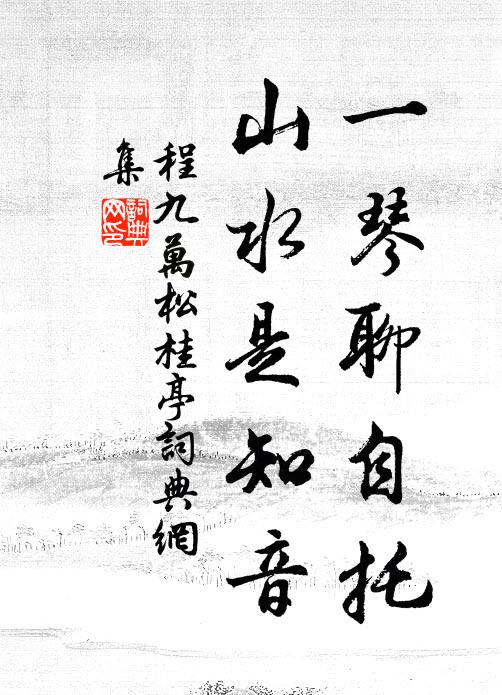 一琴聊自托
山水是知音
程九萬松桂亭詞典網
集
詞典
网印